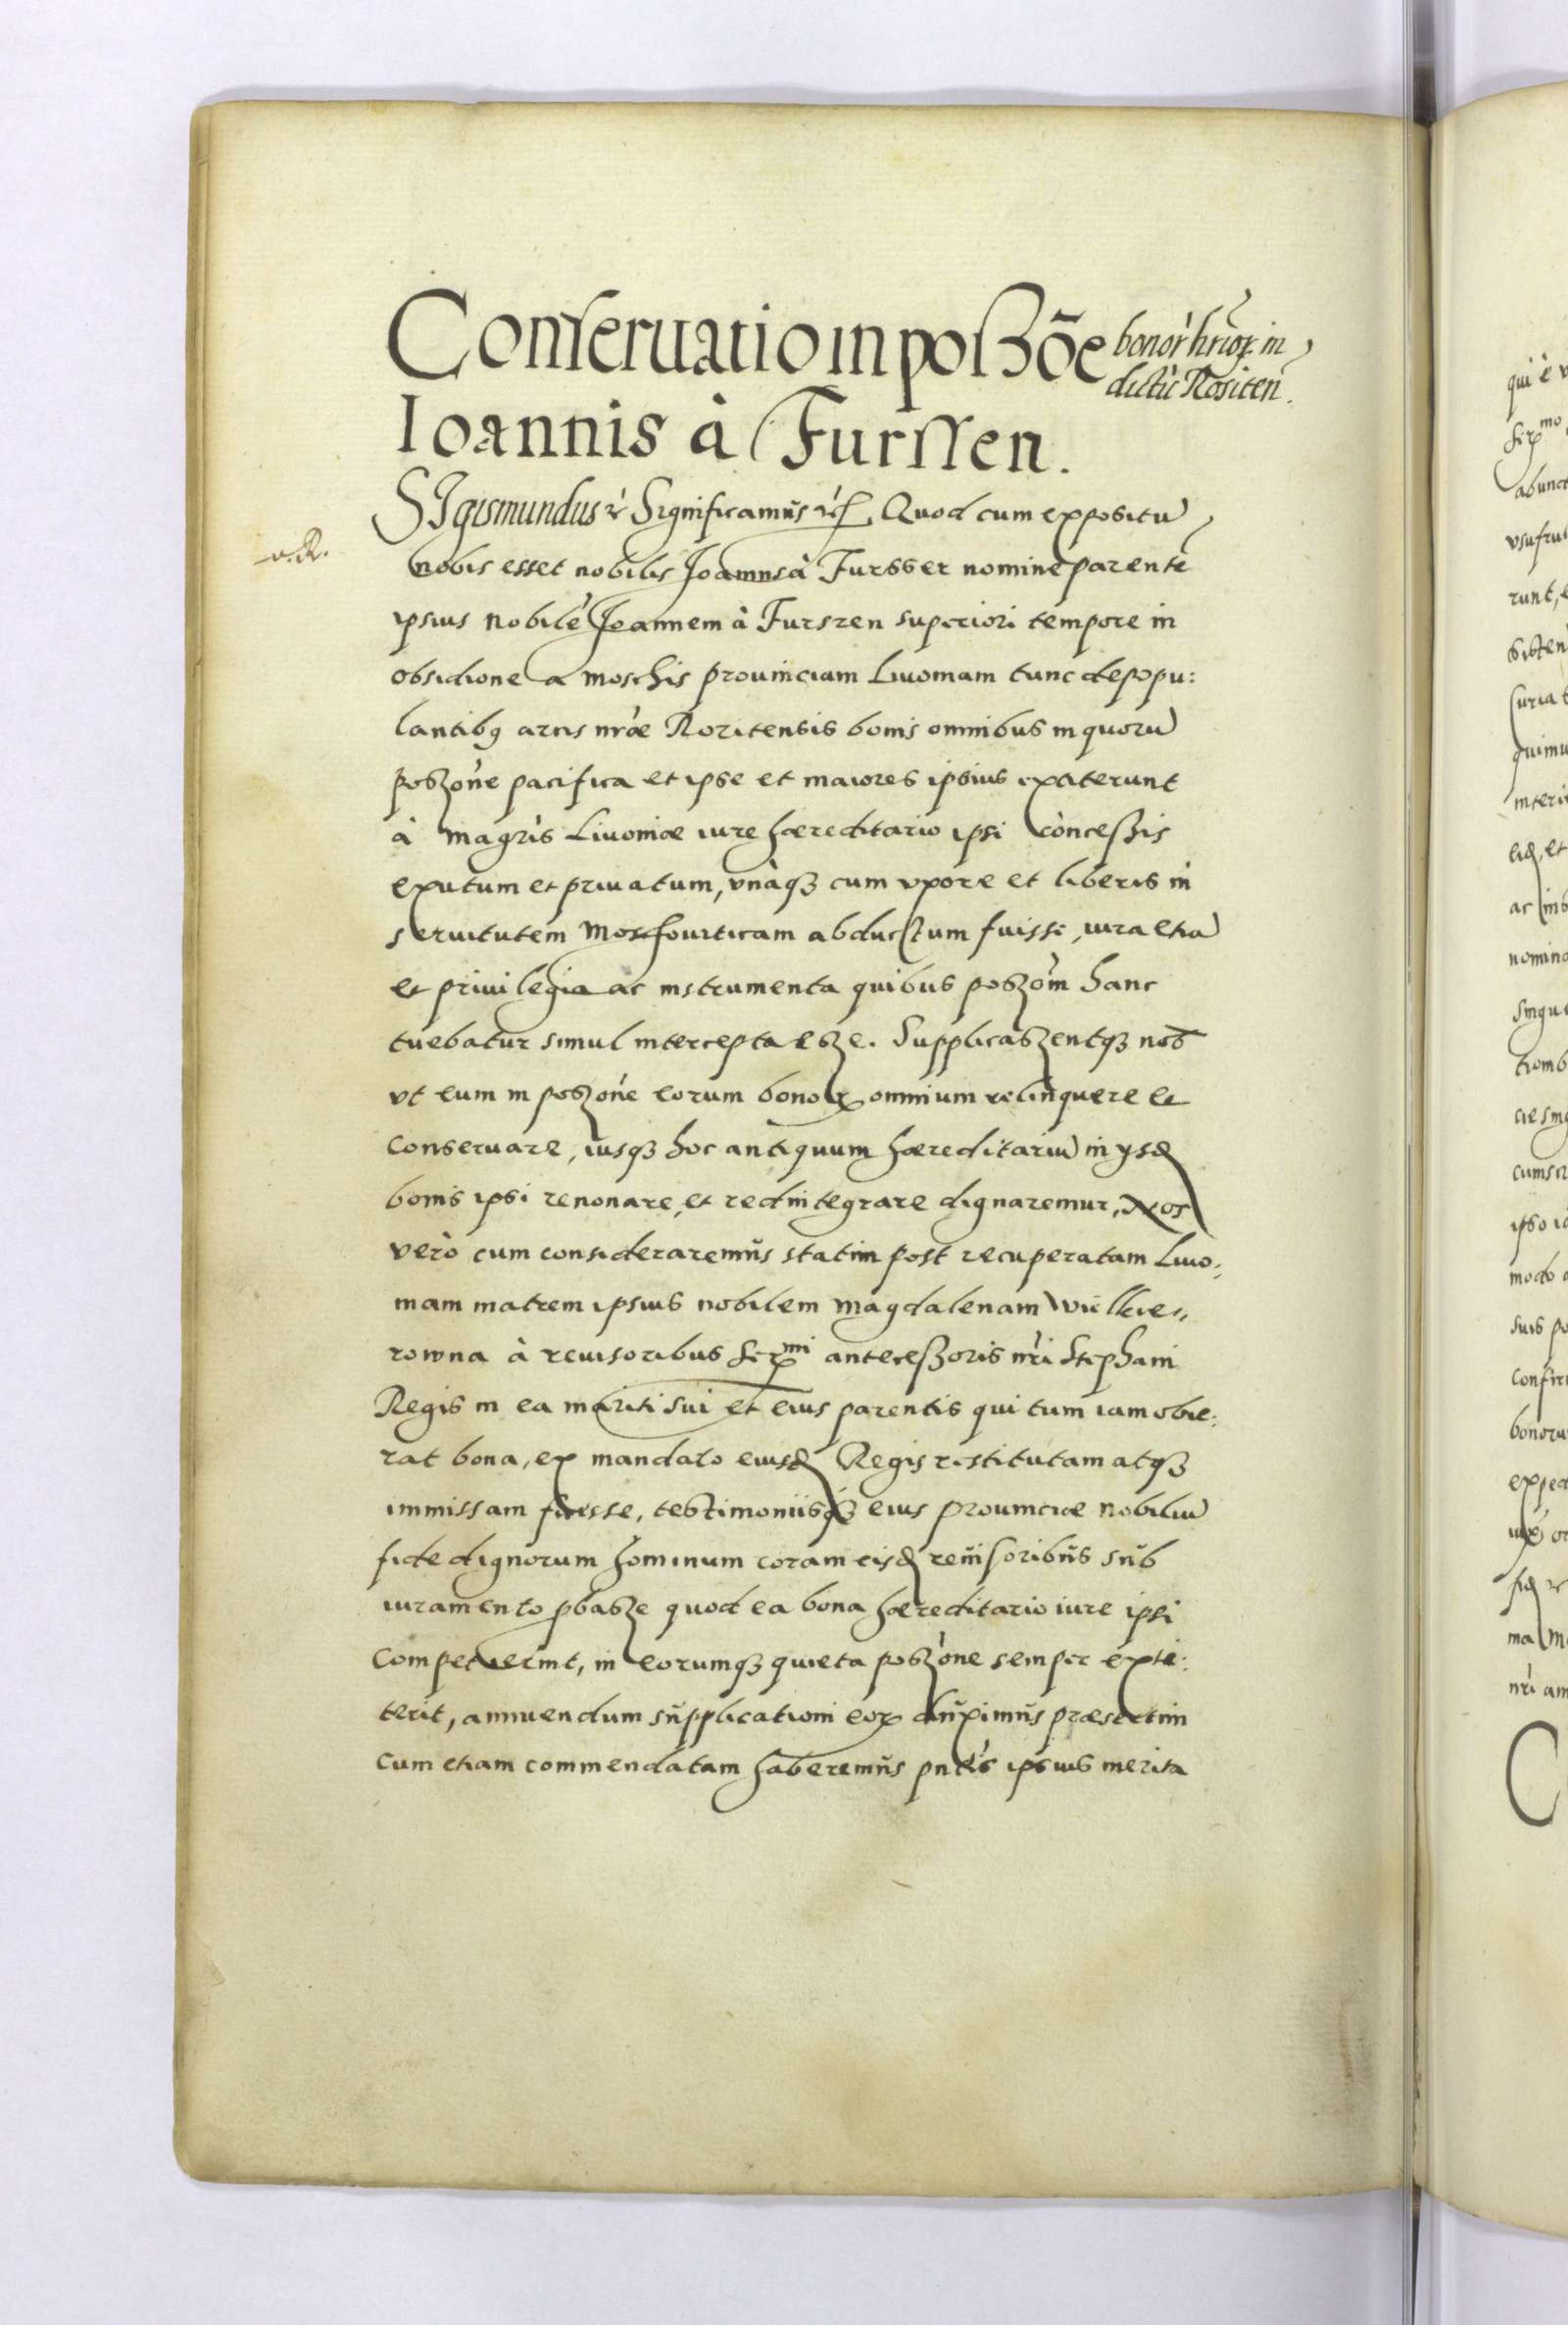 Conseruatio in poszõe bonor̀ hr̃ior̃ in
dictù Rositen̄.
Ioannis à Furssen.
SIgismundus &c̀ Significamūs &c̀, Quod cum expositū
nobis esset nobilis Joannes à Fursser nomine parentē
ipsius nobilē Joannem à Furszen superiori tempore in
obsidione a moschis prouinciam Liuoniam tunc depopu:
lantibꝰ arcis nr̀æ Rozitensis bonis omnibus in quorū
poszon̄e pacifica et ipse et maiores ipsius extiterunt
à magr̀is Liuoniæ iure hæreditario ipsi concessis
exutum et priuatum, vnàqꝫ cum vxore et liberis in
seruitutem moschouiticam abductum fuisse, iura etiā
et priuilegia ac instrumenta quibus poszòm hanc
tuebatur simul intercepta esze. Supplicaszentqꝫ nob̄
vt eum in poszon̄e eorum bonoꝝ omnium relinquere et
conseruare, iusqꝫ hoc antiquum hæreditariū in ysd̄
bonis ipsi renouare, et redintegrare dignaremur, Nos
verò cum consideraremūs statim post recuperatam Liuo:
niam matrem ipsius nobilem magdalenam Wulkie„
rowna à reuisoribus Serᵐⁱ antecessoris nr̀i Stephani
Regis in ea mariti sui et eius parentis qui tum iam obie:
rat bona, ex mandato eiusd̄ Regis restitutam atqꝫ
immissam fuisse, testimoniisqꝫ eius prouinciæ nobiliū
fide dignorum hominum coram eisd̄ reūisoribūs sūb
iuramento ꝓbasze quod ea bona hæreditario iure ipsi
competierint, in eorumqꝫ quieta poszòne semper exti:
terit, annuendum sūpplicationi eoꝝ dūximūs præsertim
cum etiam commendatam haberemūs pntìs ipsius merita